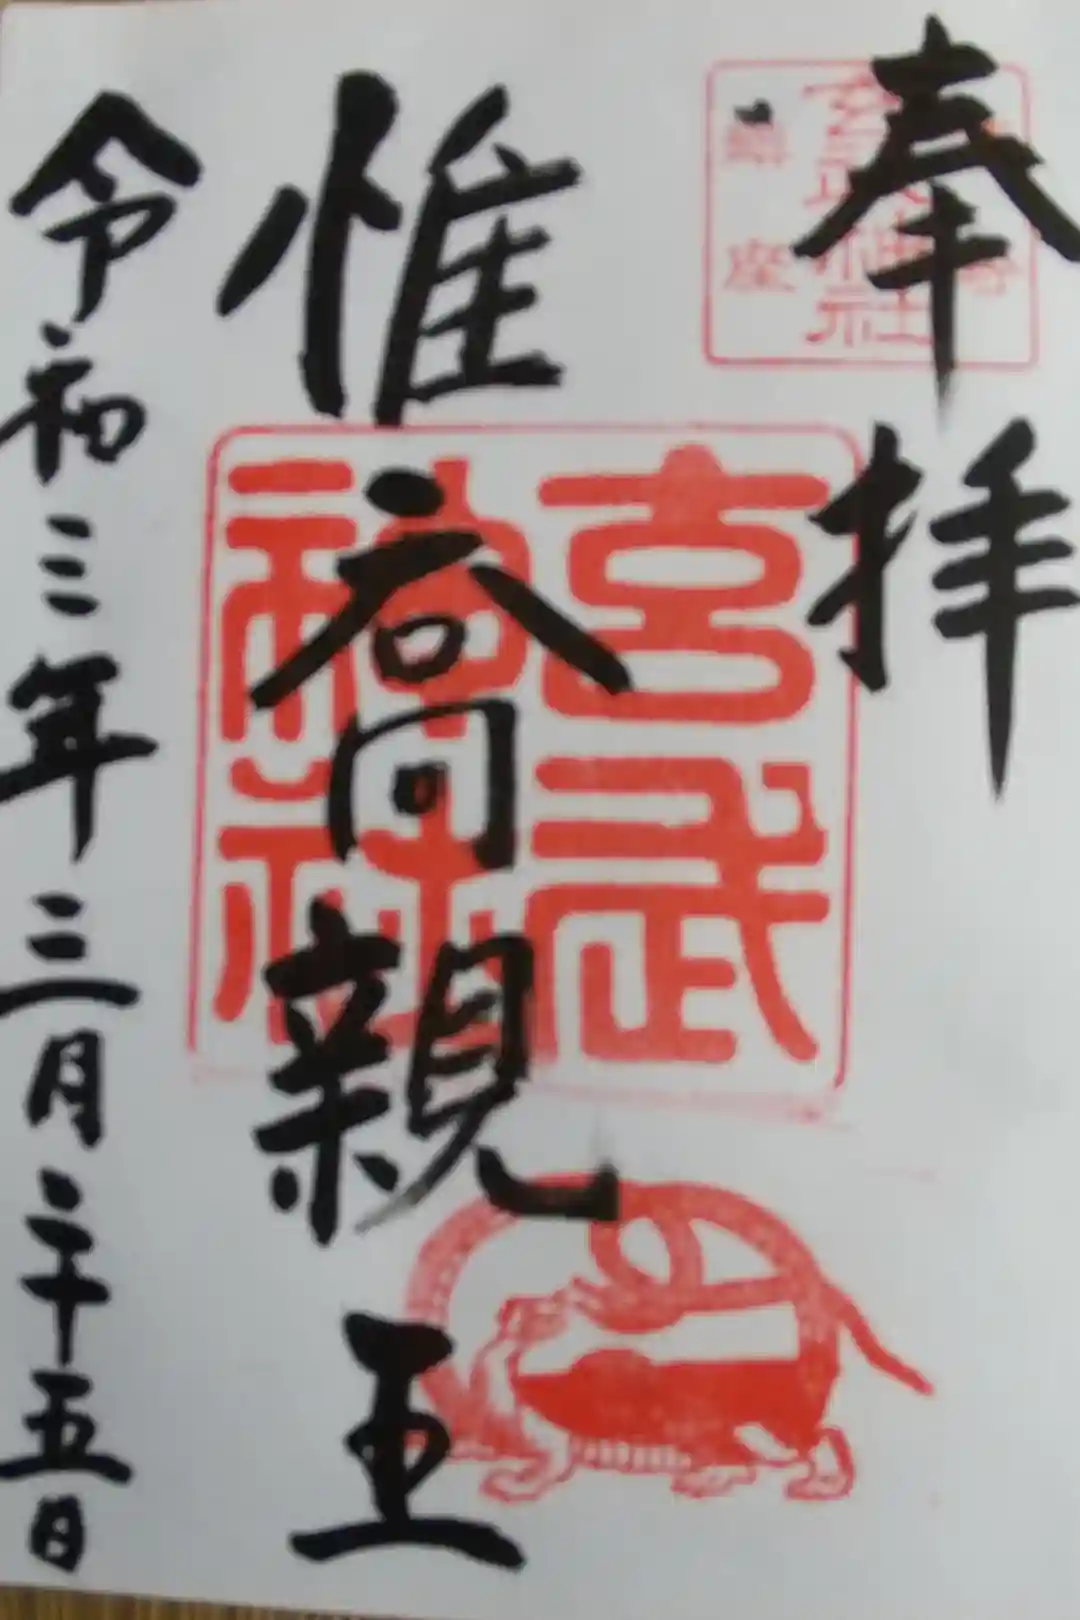 奉拝
玄武神社
鎮座
惟喬親王
玄武
神社
令和三年三月二十五日